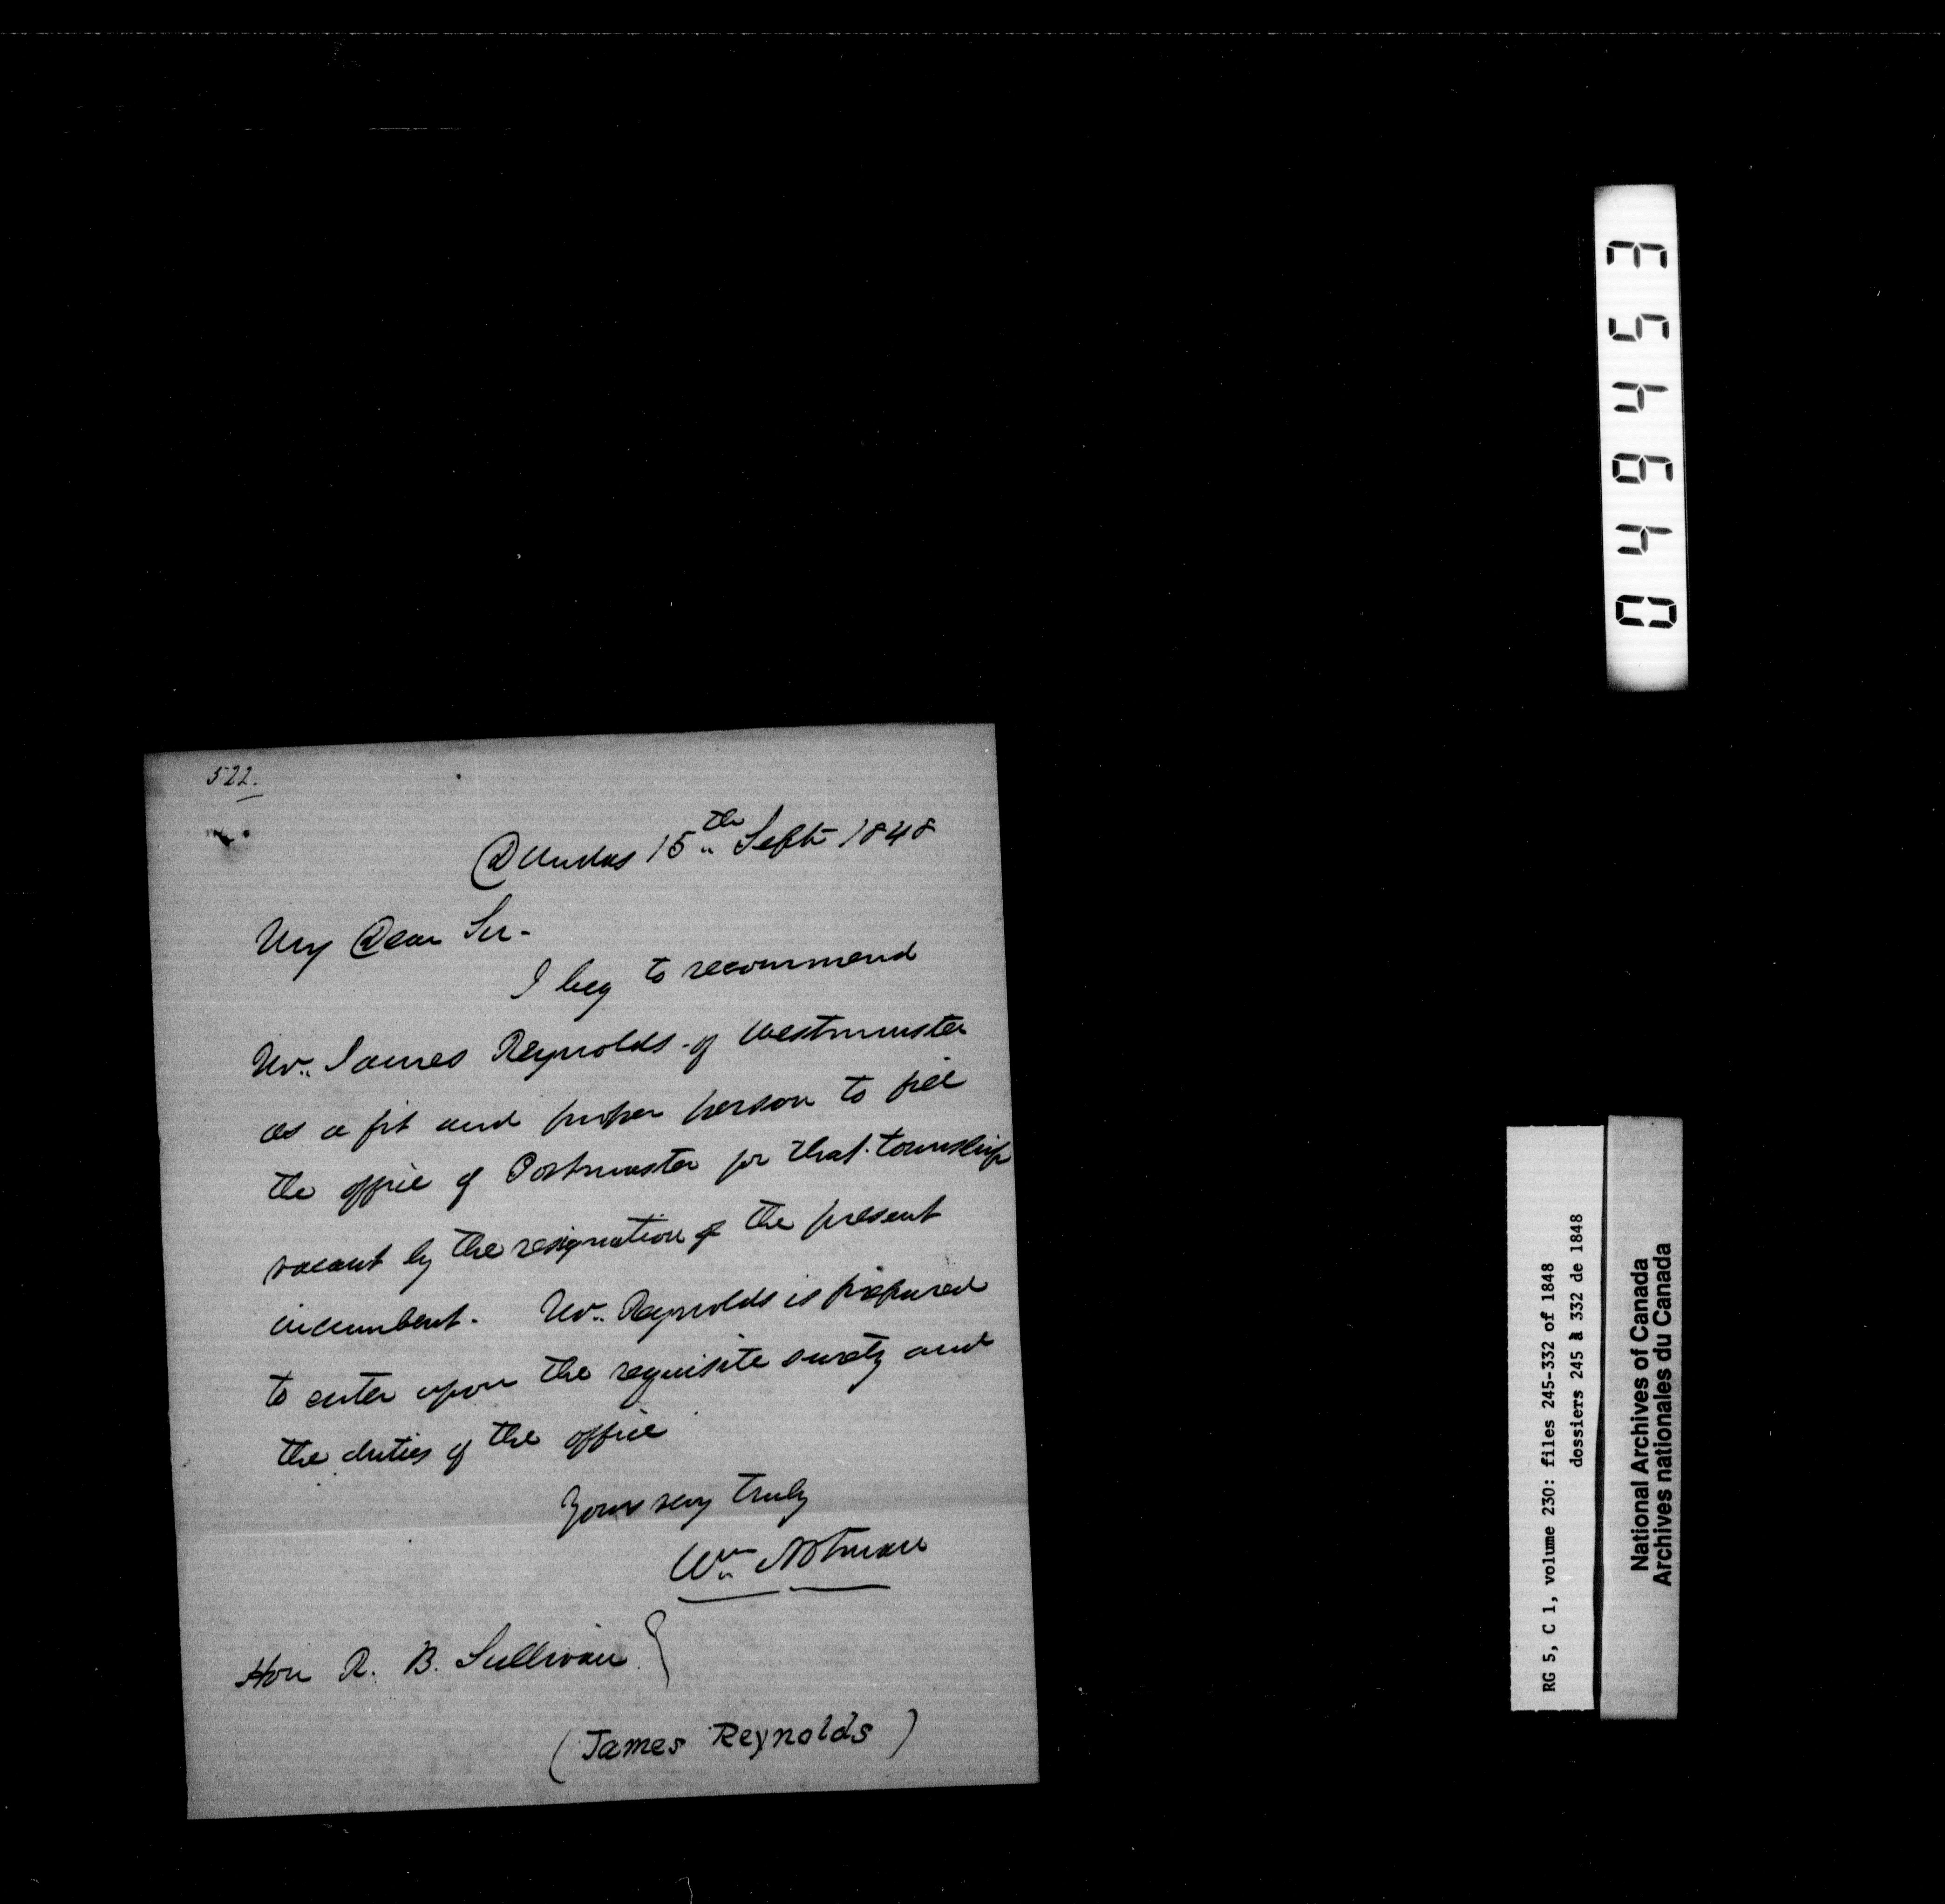 522.
Dundas 15th Sept 1848
My Dear Sir -
I beg to recommend
Mr. James Reynolds - of Westminster
as a fit and proper person to fill
the office of Postmaster for that township
vacant by the resignation of the present
incumbent. Mr. Reynolds is prepared
to enter upon the requisite surety and
the duties of the office
Yours very truly
Wm Notman
Hon R. B. Sullivan
(James Reynolds)
044453
RG 5, C 1, volume 230: files 245-332 of 1848
dossiers 245 à 332 de 1848
National Archives of Canada
Archives nationales du Canada